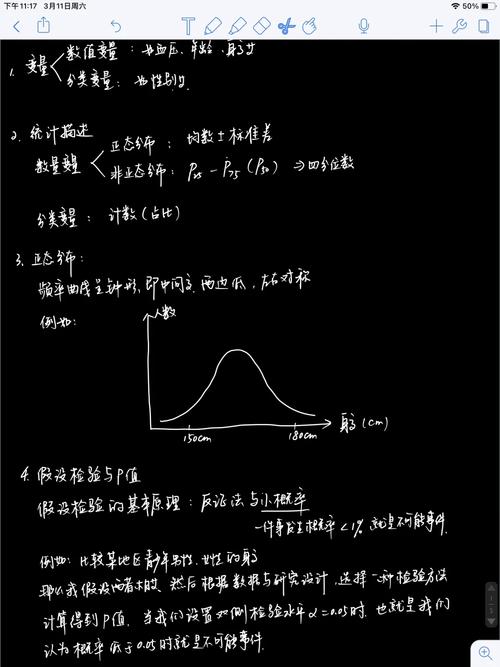 下午11:17 3月11日周六
50%
1. 变量
数值变量：如血压、年龄、身高
分类变量：如性别
2. 统计描述
数量变量
正态分布：均数±标准差
非正态分布：P25 - P75 (P50) ⇒ 四分位数
分类变量：计数(占比)
3. 正态分布：
频率曲线呈钟形，即中间高，两边低，左右对称
例如：
人数
150cm 180cm 身高(cm)
4. 假设检验与P值
假设检验的基本原理：反证法与小概率
一件事发生概率<1% 就是不可能事件
例如：比较某地区青少年男性、女性的身高
那么我假设两者相, 然后根据数据与研究设计，选择一种检验方法
计算得到P值. 当我们设置双侧检验水平α=0.05时. 也就是我们
认为概率低于0.05时就是不可能事件.